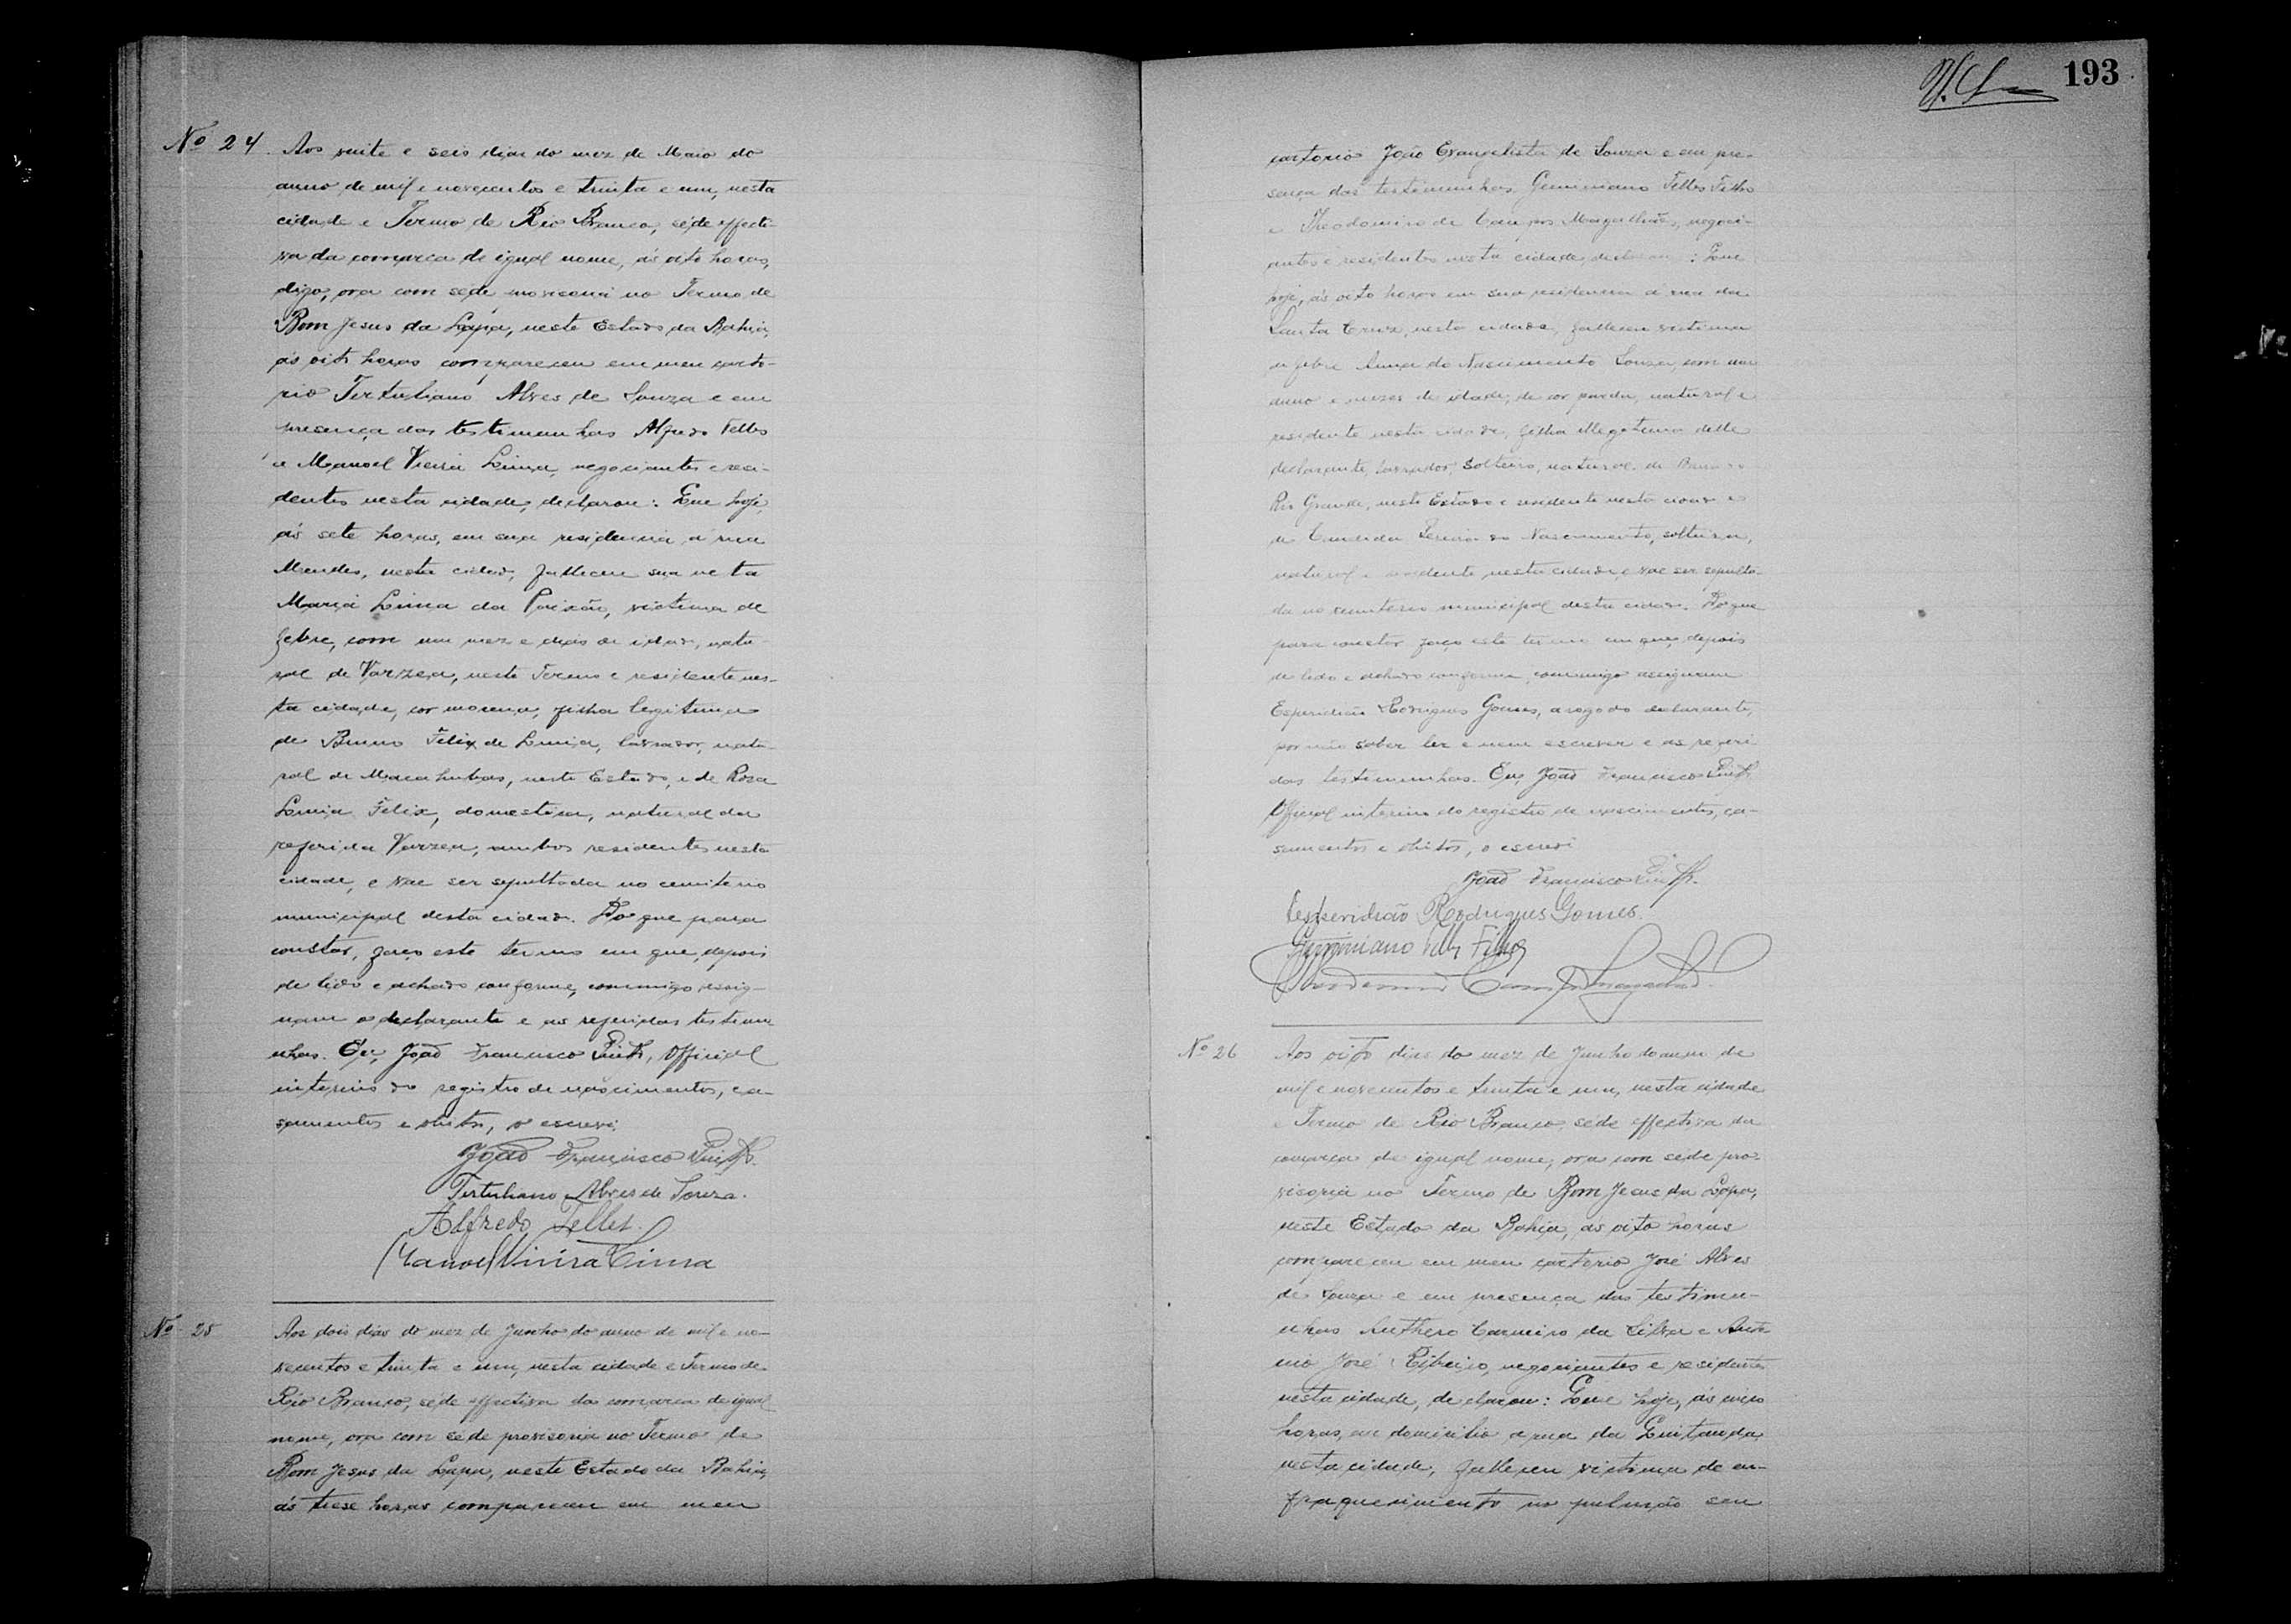 Nº 24. Aos vinte e seis dias do mez de Maio do
anno de mil e novecentos e trinta e um, nesta
cidade e Termo de Rio Branco, séde effecti-
va da comarca de igual nome, ás oito horas,
digo, ora com séde provisoria no Termo de
Bom Jesus da Lapa, neste Estado da Bahia,
ás oito horas compareceu em meu carto-
rio Tertuliano Alves de Souza e em
presença das testimunhas Alfredo Telles
e Manoel Vieira Lima, negociantes e resi-
dentes nesta cidade, declarou: Que hoje,
ás sete horas, em sua residencia á rua
Mendes, nesta cidade, falleceu sua neta
Maria Lima da Paixão, victima de
febre, com um mez e dias de idade, natu-
ral de Varzea, neste Termo e residente nes-
ta cidade, cor morena, filha legitima
de Bruno Felix de, lavrador, natu-
ral de Macahubas, neste Estado, e de Rosa
Felix, domestica, natural da
referida Varzea, ambos residentes nesta
cidade, e vae ser sepultada no cemiterio
municipal desta cidade. Do que para
constar, faço este termo em que, depois
de lido e achado conforme, commigo assig-
nam o declarante e as referidas testimu-
nhas. Eu, João Francisco, Official
interino do registro de nascimentos, ca-
samentos e obitos, o escrevi.
João Francisco
Tertuliano Alves de Souza.
Alfredo Telles.
Manoel Vieira Lima
Nº 25 Aos dois dias do mez de Junho do anno de mil e no-
vecentos e trinta e um, nesta cidade e Termo de
Rio Branco, séde effectiva da comarca de igual
nome, ora com séde provisoria no Termo de
Bom Jesus da Lapa, neste Estado da Bahia,
ás treze horas compareceu em meu
193
cartorio João Evangelista de Souza e em pre-
sença das testimunhas Geminiano Telles Filho
e Theodomiro de Campos Magalhães, negoci-
antes e residentes nesta cidade, declarou: Que
hoje, ás oito horas em sua residencia á rua da
Santa Cruz, nesta cidade, falleceu victima
de febre Anna do Nascimento Souza, com um
anno e mezes de idade, de cor parda, natural e
residente nesta cidade, filha illegitima delle
declarante, lavrador, solteiro, natural de
Rio Grande, neste Estado e residente nesta cidade e
de Candida Pereira do Nascimento, solteira,
natural e residente nesta cidade, e vae ser sepulta-
da no cemiterio municipal desta cidade. Do que
para constar faço este termo em que, depois
de lido e achado conforme, commigo assignam
Esperidião Rodrigues Gomes, a rogo do declarante,
por não saber ler e nem escrever e as referi-
das testimunhas. Eu, João Francisco
Official interino do registro de nascimentos, ca-
samentos e obitos, o escrevi
João Francisco
Esperidião Rodrigues Gomes.
Geminiano Telles Filho
Theodomiro Campos Magalhães.
Nº 26 Aos oito dias do mez de Junho do anno de
mil e novecentos e trinta e um, nesta cidade
e Termo de Rio Branco, séde effectiva da
comarca de igual nome, ora com séde pro-
visoria no Termo de Bom Jesus da Lapa,
neste Estado da Bahia, ás oito horas
compareceu em meu cartorio José Alves
de Souza e em presença das testimu-
nhas Anthero Carneiro da Silva e Anto-
nio José Ribeiro, negociantes e residentes
nesta cidade, declarou: Que hoje, ás cinco
horas, em domicilio a rua da Quitanda,
nesta cidade, falleceu victima de en-
fraquecimento no pulmão seu